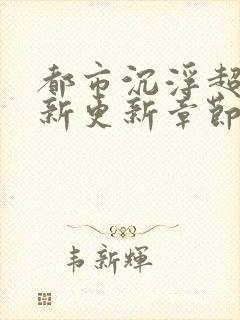 都市沉浮超
新更新章節
韦新輝